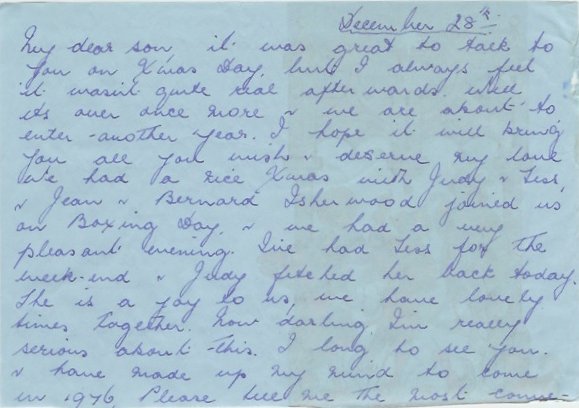 December 28th
My dear son, it was great to talk to
you on Xmas Day, but I always feel
it wasn't quite real afterwards. Well
its over once more & we are about to
enter another year. I hope it will bring
you all you wish & deserve my love
We had a nice Xmas with Judy & Liss,
& Jean & Bernard Isherwood joined us
on Boxing Day, & we had a very
pleasant evening. I've had Liss for the
week-end & Judy fetched her back today.
She is a joy to us, we have lovely
times together. Now darling, I'm really
serious about this. I long to see you.
& have made up my mind to come
in 1976. Please tell me the most conve-